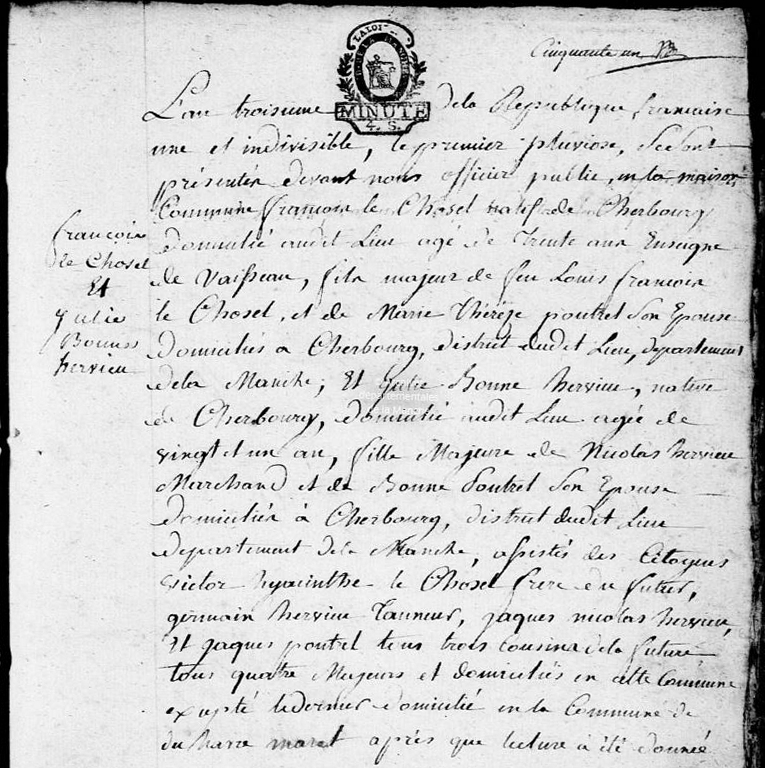 Cinquante un
LA LOI
MINUTE
4. S.
L'an troisieme dela Republique francaise
une et indivisible, le premier pluviose, se sont
présentés devant nous officier public, en la maison
Commune francois le Chosel natif de Cherbourg
domicilié audit Lieu agé de Trente ans Enseigne
de Vaisseau, fils majeur de feu Louis francois
le Chosel, et de Marie Thérèze poutrel Son Epouse
Domiciliés à Cherbourg, district dudit Lieu, departement
dela Manche; Et Julie Bonne hervieu, native
de Cherbourg, domicilié audit Lieu agée de
vingt et un an, fille Majeure de Nicolas hervieu
Marchand et de Bonne Poutrel Son Epouse
domiciliés à Cherbourg, district dudit Lieu
departement dela Manche, assistés des Citoyens
victor hyacinthe le Chosel frere du futur,
germain hervieu Tanneur, jaques nicolas hervieu,
Et jaques poutrel tous trois cousins dela future
tous quatre Majeurs et domiciliés en cette Commune
exepté le dernier domicilié en la Commune de
du havre marat après que lecture a été donnée
françois
le Chosel
Et
Julie
Bonne
hervieu
départementales
la Manche